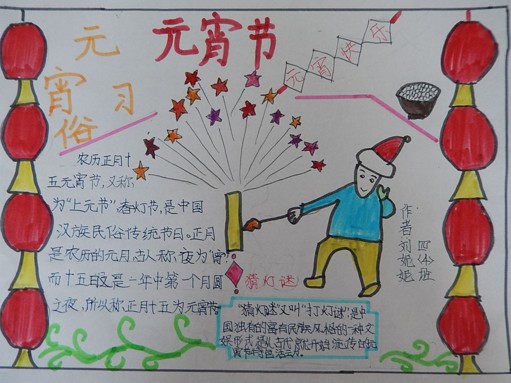 元宵节
元宵习俗
元宵快乐
农历正月十
五元宵节,又称
为“上元节”春灯节,是中国
汉族民俗传统节日。正月
是农历的元月,古人称夜为“宵”
而十五日又是一年中第一个月圆
之夜,所以称正月十五为元宵节
猜灯谜
“猜灯谜”又叫“打灯谜”是中
国独有的富有民族风格的一种文
娱形式是从古代就开始流传的
作者刘妮妮
四〈4〉班